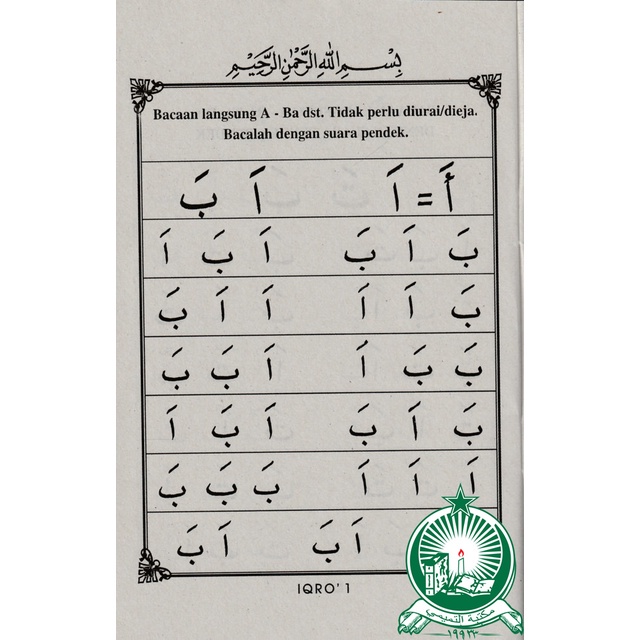 بِسْمِ اللهِ الرَّحْمٰنِ الرَّحِيْمِ
Bacaan langsung A - Ba dst. Tidak perlu diurai/dieja.
Bacalah dengan suara pendek.
أَ = اَ اَ بَ
بَ اَ بَ اَ بَ اَ
بَ اَ اَ اَ اَ بَ
بَ بَ اَ اَ بَ بَ
بَ اَ بَ اَ بَ اَ
اَ اَ اَ بَ بَ بَ
اَ بَ اَ بَ
IQRO' 1
مكتبة